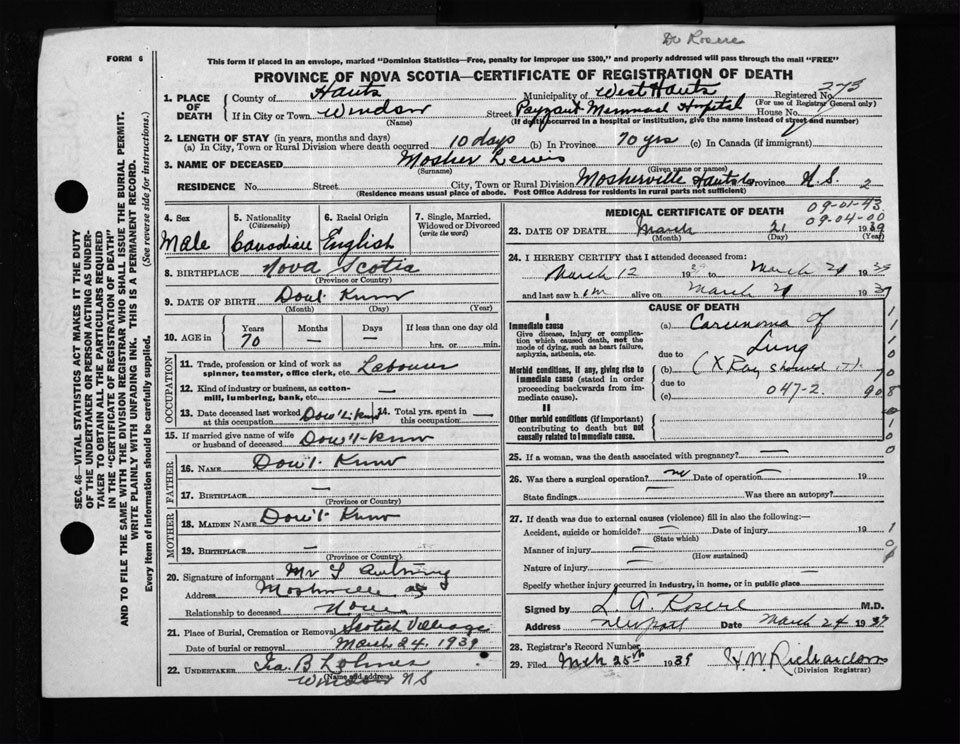 Dr Rosere
FORM 6
This form if placed in an envelope, marked "Dominion Statistics—Free, penalty for improper use $300," and properly addressed will pass through the mail "FREE"
PROVINCE OF NOVA SCOTIA—CERTIFICATE OF REGISTRATION OF DEATH
SEC. 46—VITAL STATISTICS ACT MAKES IT THE DUTY
OF THE UNDERTAKER OR PERSON ACTING AS UNDER-
TAKER TO OBTAIN ALL THE PARTICULARS REQUIRED
IN THE "CERTIFICATE OF REGISTRATION OF DEATH"
AND TO FILE THE SAME WITH THE DIVISION REGISTRAR WHO SHALL ISSUE THE BURIAL PERMIT.
WRITE PLAINLY WITH UNFADING INK. THIS IS A PERMANENT RECORD.
Every item of information should be carefully supplied. (See reverse side for instructions.)
1. PLACE OF DEATH
County of Hants Municipality of West Hants Registered No. 275
(For use of Registrar General only)
If in City or Town Windsor Street Payzant Memorial Hospital House No.
(Name) (If death occurred in a hospital or institution, give the name instead of street and number)
2. LENGTH OF STAY (in years, months and days)
(a) In City, Town or Rural Division where death occurred 10 days (b) In Province 70 yrs (c) In Canada (if immigrant)
3. NAME OF DECEASED Mosher Lewis
(Surname) (Given name or names)
RESIDENCE No. Street City, Town or Rural Division Mosherville Hants Co Province N.S. 2
(Residence means usual place of abode. Post Office Address for residents in rural parts not sufficient)
4. Sex Male
5. Nationality (Citizenship) Canadian
6. Racial Origin English
7. Single, Married, Widowed or Divorced (write the word)
8. BIRTHPLACE Nova Scotia
(Province or Country)
9. DATE OF BIRTH Dow't Know
(Month) (Day) (Year)
10. AGE in Years 70 Months — Days — If less than one day old hrs. or min.
OCCUPATION
11. Trade, profession or kind of work as spinner, teamster, office clerk, etc. Labourer
12. Kind of industry or business, as cotton-mill, lumbering, bank, etc. —
13. Date deceased last worked at this occupation Dow't Know 14. Total yrs. spent in this occupation —
15. If married give name of wife or husband of deceased Dow't Know
FATHER
16. NAME Dow't Know
17. BIRTHPLACE —
(Province or Country)
MOTHER
18. MAIDEN NAME Dow't Know
19. BIRTHPLACE —
(Province or Country)
20. Signature of informant Mr
Address Mosherville
Relationship to deceased None
21. Place of Burial, Cremation or Removal Scotch Village
Date of burial or removal March 24. 1939
22. UNDERTAKER Ira. B Lohnes
(Name and address)
Windsor N S
MEDICAL CERTIFICATE OF DEATH 09-01-43
09-04-00
23. DATE OF DEATH March 21 1939
(Month) (Day) (Year)
24. I HEREBY CERTIFY that I attended deceased from:
March 12 1939 to March 21 1939
and last saw him alive on March 21 1939
CAUSE OF DEATH
I
Immediate cause
Give disease, injury or complication which caused death, not the mode of dying, such as heart failure, asphyxia, asthenia, etc.
(a) Carcinoma of
due to Lung
Morbid conditions, if any, giving rise to immediate cause (stated in order proceeding backwards from immediate cause).
(b) (X Ray showed it).
due to 047-2.
(c)
II
Other morbid conditions (if important) contributing to death but not causally related to immediate cause.
25. If a woman, was the death associated with pregnancy? —
26. Was there a surgical operation? no Date of operation — 19
State findings — Was there an autopsy?
27. If death was due to external causes (violence) fill in also the following:—
Accident, suicide or homicide? — Date of injury 19
(State which)
Manner of injury —
(How sustained)
Nature of injury —
Specify whether injury occurred in industry, in home, or in public place —
Signed by L. A. Rosere M.D.
Address Newport Date March 24 1939
28. Registrar's Record Number
29. Filed Mch 25th 1939 H W Richardson
(Division Registrar)